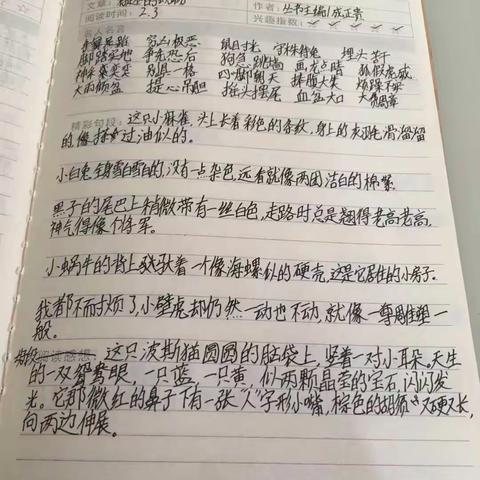 文章:
作者: 丛书主编/成正贵
阅读时间: 2.3
兴趣指数:
名人名言
穷凶极恶 鼠目寸光 守株待兔 埋头苦干
脚踏实地 争先恐后 狗急跳墙 画龙点睛 狐假虎威
神采奕奕 别具一格 四脚朝天 捧腹大笑 烦躁不安
大雨倾盆 提心吊胆 摇头摆尾 血盆大口
精彩句段: 这只小麻雀,头上长着彩色的条纹,身上的灰羽毛滑溜溜
的像抹过油似的。
小白兔全身雪白雪白的,没有一点杂色,远看就像两团洁白的棉絮。
黑子的尾巴上稍微带有一丝白色,走路时总是翘得老高老高,
神气得像个将军。
小蜗牛的背上驮着一个像海螺似的硬壳,这是它居住的小房子。
我都不耐烦了,小壁虎却仍然一动也不动,就像一尊雕塑一
般。
阅读感想: 这只波斯猫圆圆的脑袋上,竖着一对小耳朵。天生
的一双鸳鸯眼,一只蓝,一只黄,似两颗晶莹的宝石,闪闪发
光。它那微红的鼻子下有一张"人"字形小嘴,棕色的胡须又硬又长,
向两边伸展。